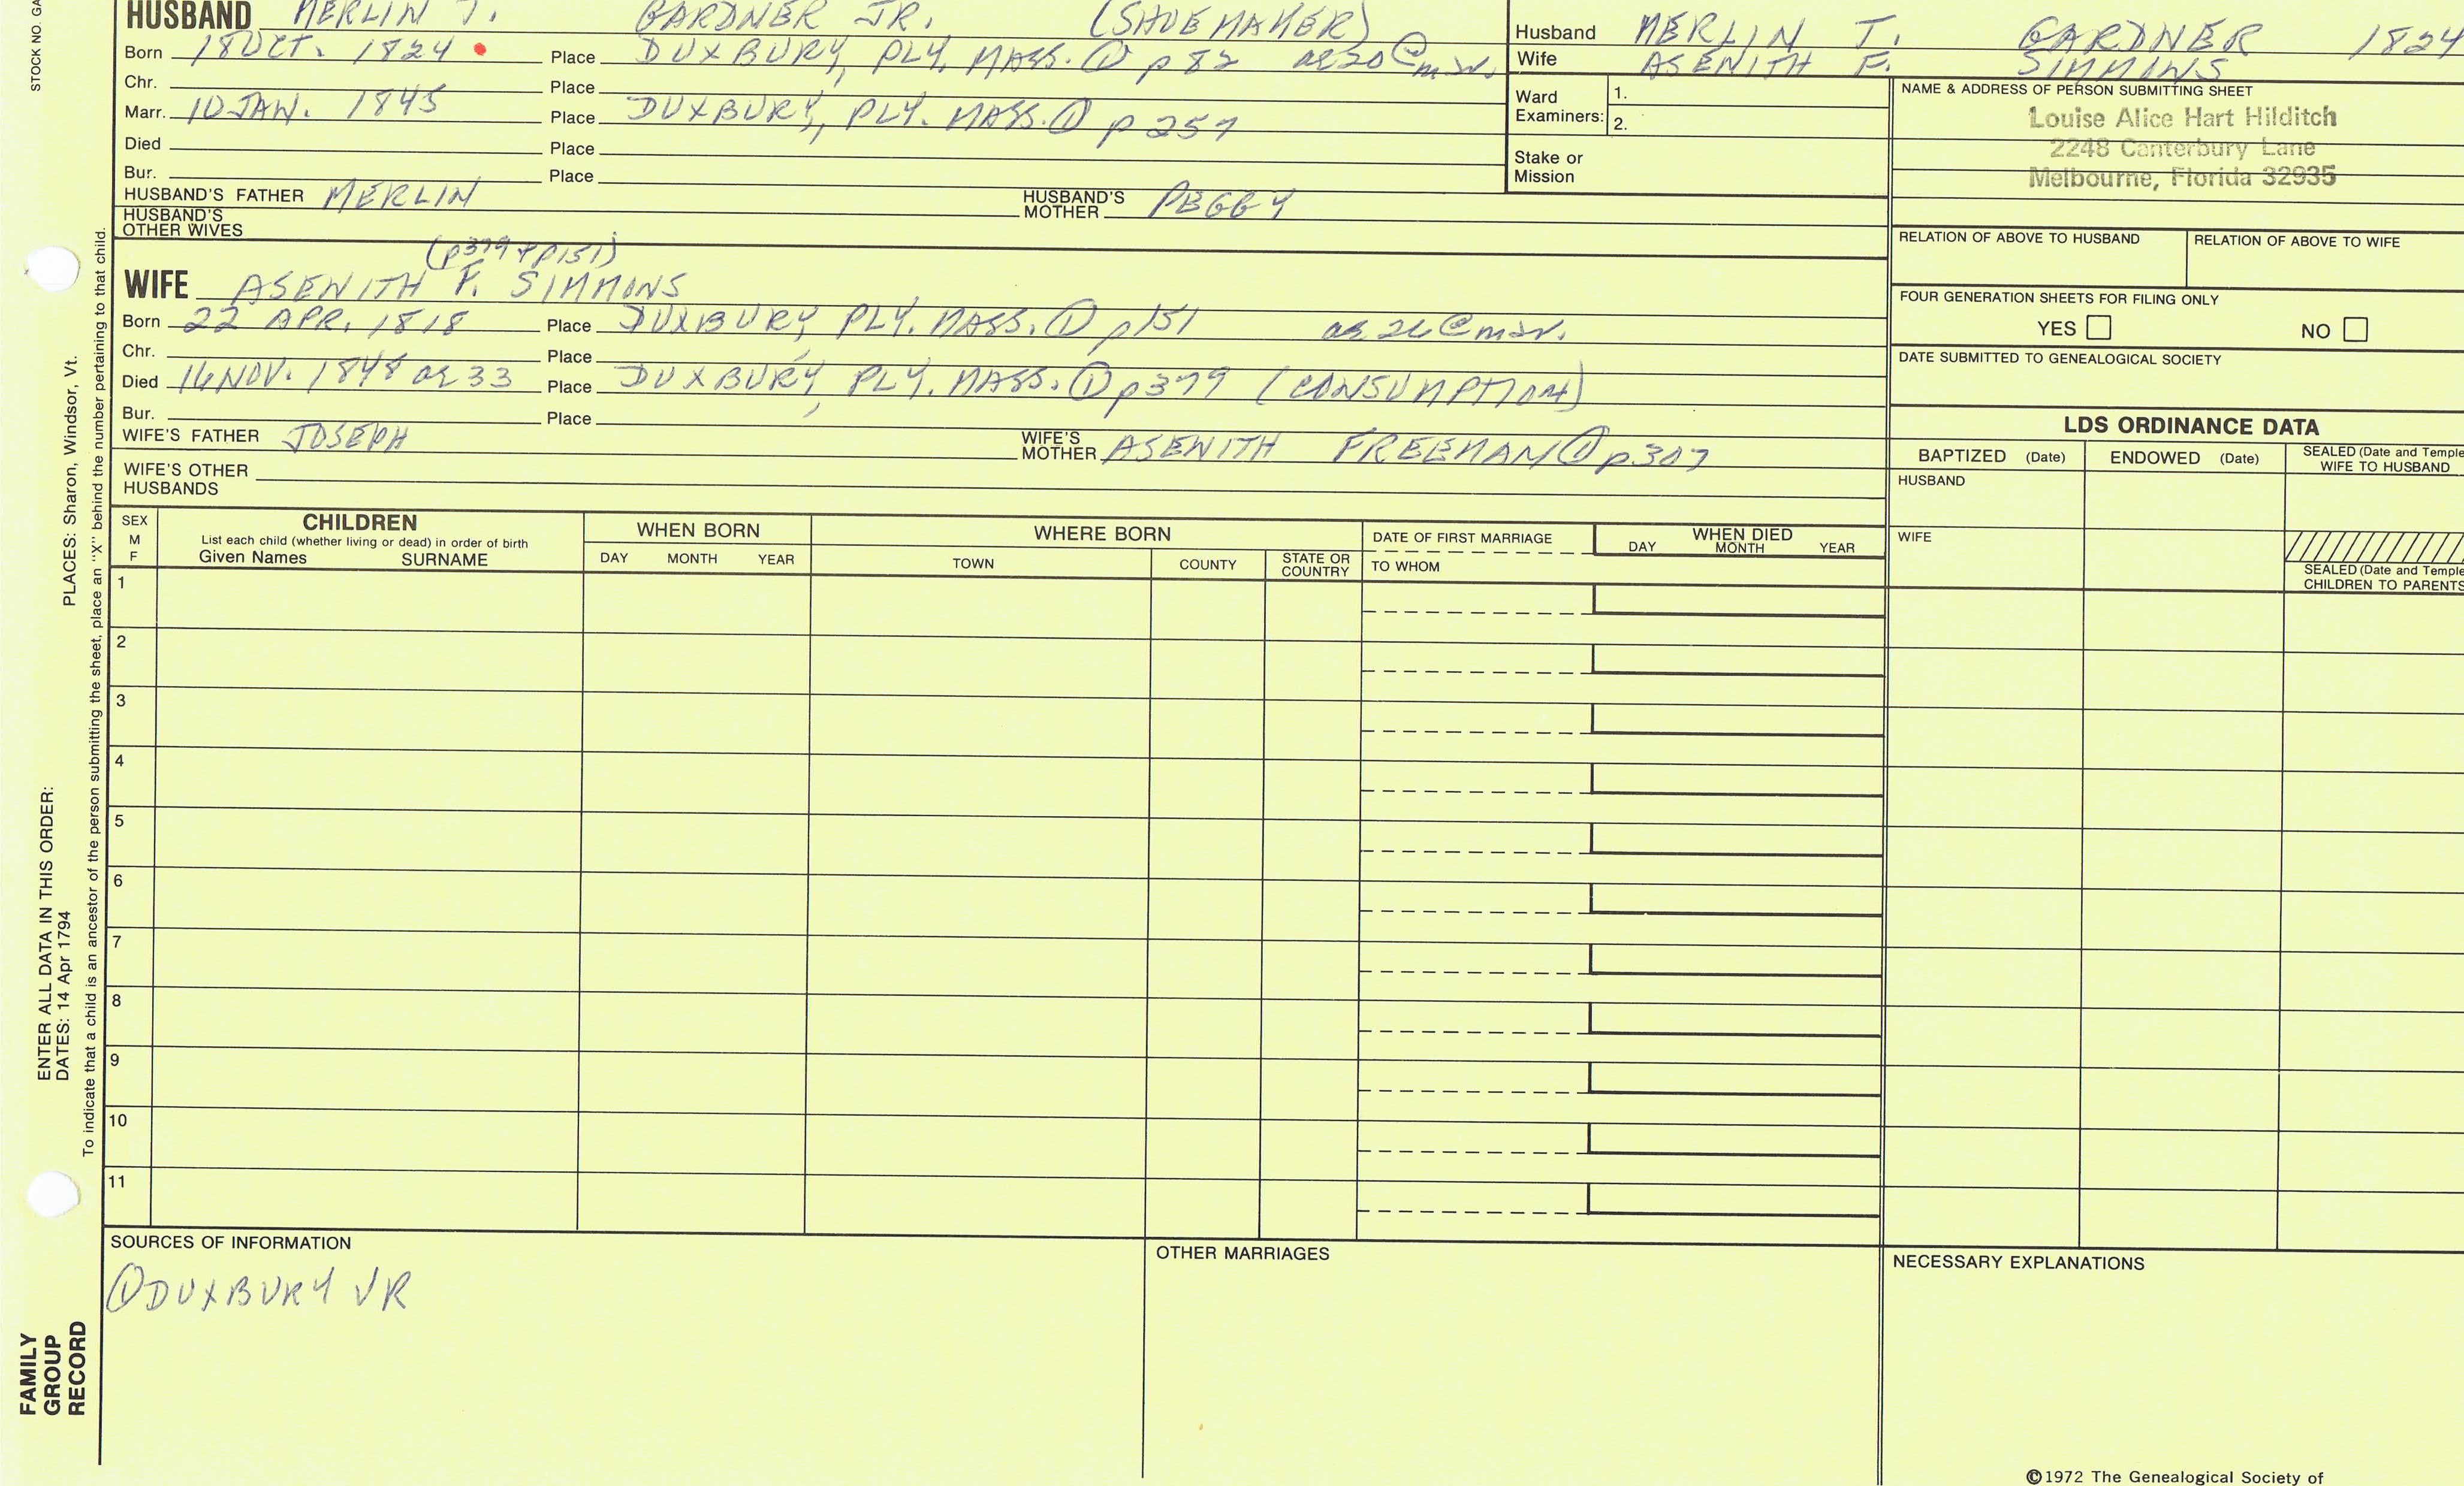 STOCK NO. GA
HUSBAND MERLIN T. GARDNER JR. (SHOEMAKER)
Born 18 OCT. 1824 Place DUXBURY, PLY. MASS. ① p 82 ae 20 @ mar.
Chr. Place
Marr. 10 JAN. 1845 Place DUXBURY, PLY. MASS. ① p 257
Died Place
Bur. Place
HUSBAND'S FATHER MERLIN HUSBAND'S MOTHER PEGGY
HUSBAND'S OTHER WIVES
(p379 & p151)
WIFE ASENITH F. SIMMONS
Born 22 APR. 1818 Place DUXBURY, PLY. MASS. ① p151 ae 26 @ mar.
Chr. Place
Died 16 NOV. 1848 ae 33 Place DUXBURY, PLY. MASS. ① p379 (CONSUMPTION)
Bur. Place
WIFE'S FATHER JOSEPH WIFE'S MOTHER ASENITH FREEMAN ① p.307
WIFE'S OTHER HUSBANDS
Husband MERLIN T. GARDNER 1824
Wife ASENITH F. SIMMONS
Ward Examiners: 1.
2.
Stake or Mission
NAME & ADDRESS OF PERSON SUBMITTING SHEET
Louise Alice Hart Hilditch
2248 Canterbury Lane
Melbourne, Florida 32935
RELATION OF ABOVE TO HUSBAND RELATION OF ABOVE TO WIFE
FOUR GENERATION SHEETS FOR FILING ONLY
YES NO
DATE SUBMITTED TO GENEALOGICAL SOCIETY
LDS ORDINANCE DATA
BAPTIZED (Date) ENDOWED (Date) SEALED (Date and Temple
WIFE TO HUSBAND
HUSBAND
WIFE
SEALED (Date and Temple
CHILDREN TO PARENTS
SEX M F
CHILDREN
List each child (whether living or dead) in order of birth
Given Names SURNAME
WHEN BORN
DAY MONTH YEAR
WHERE BORN
TOWN COUNTY STATE OR COUNTRY
DATE OF FIRST MARRIAGE
TO WHOM
WHEN DIED
DAY MONTH YEAR
1
2
3
4
5
6
7
8
9
10
11
SOURCES OF INFORMATION
① DUXBURY VR
OTHER MARRIAGES
NECESSARY EXPLANATIONS
©1972 The Genealogical Society of
PLACES: Sharon, Windsor, Vt.
ENTER ALL DATA IN THIS ORDER:
DATES: 14 Apr 1794
To indicate that a child is an ancestor of the person submitting the sheet, place an "X" behind the number pertaining to that child.
FAMILY
GROUP
RECORD